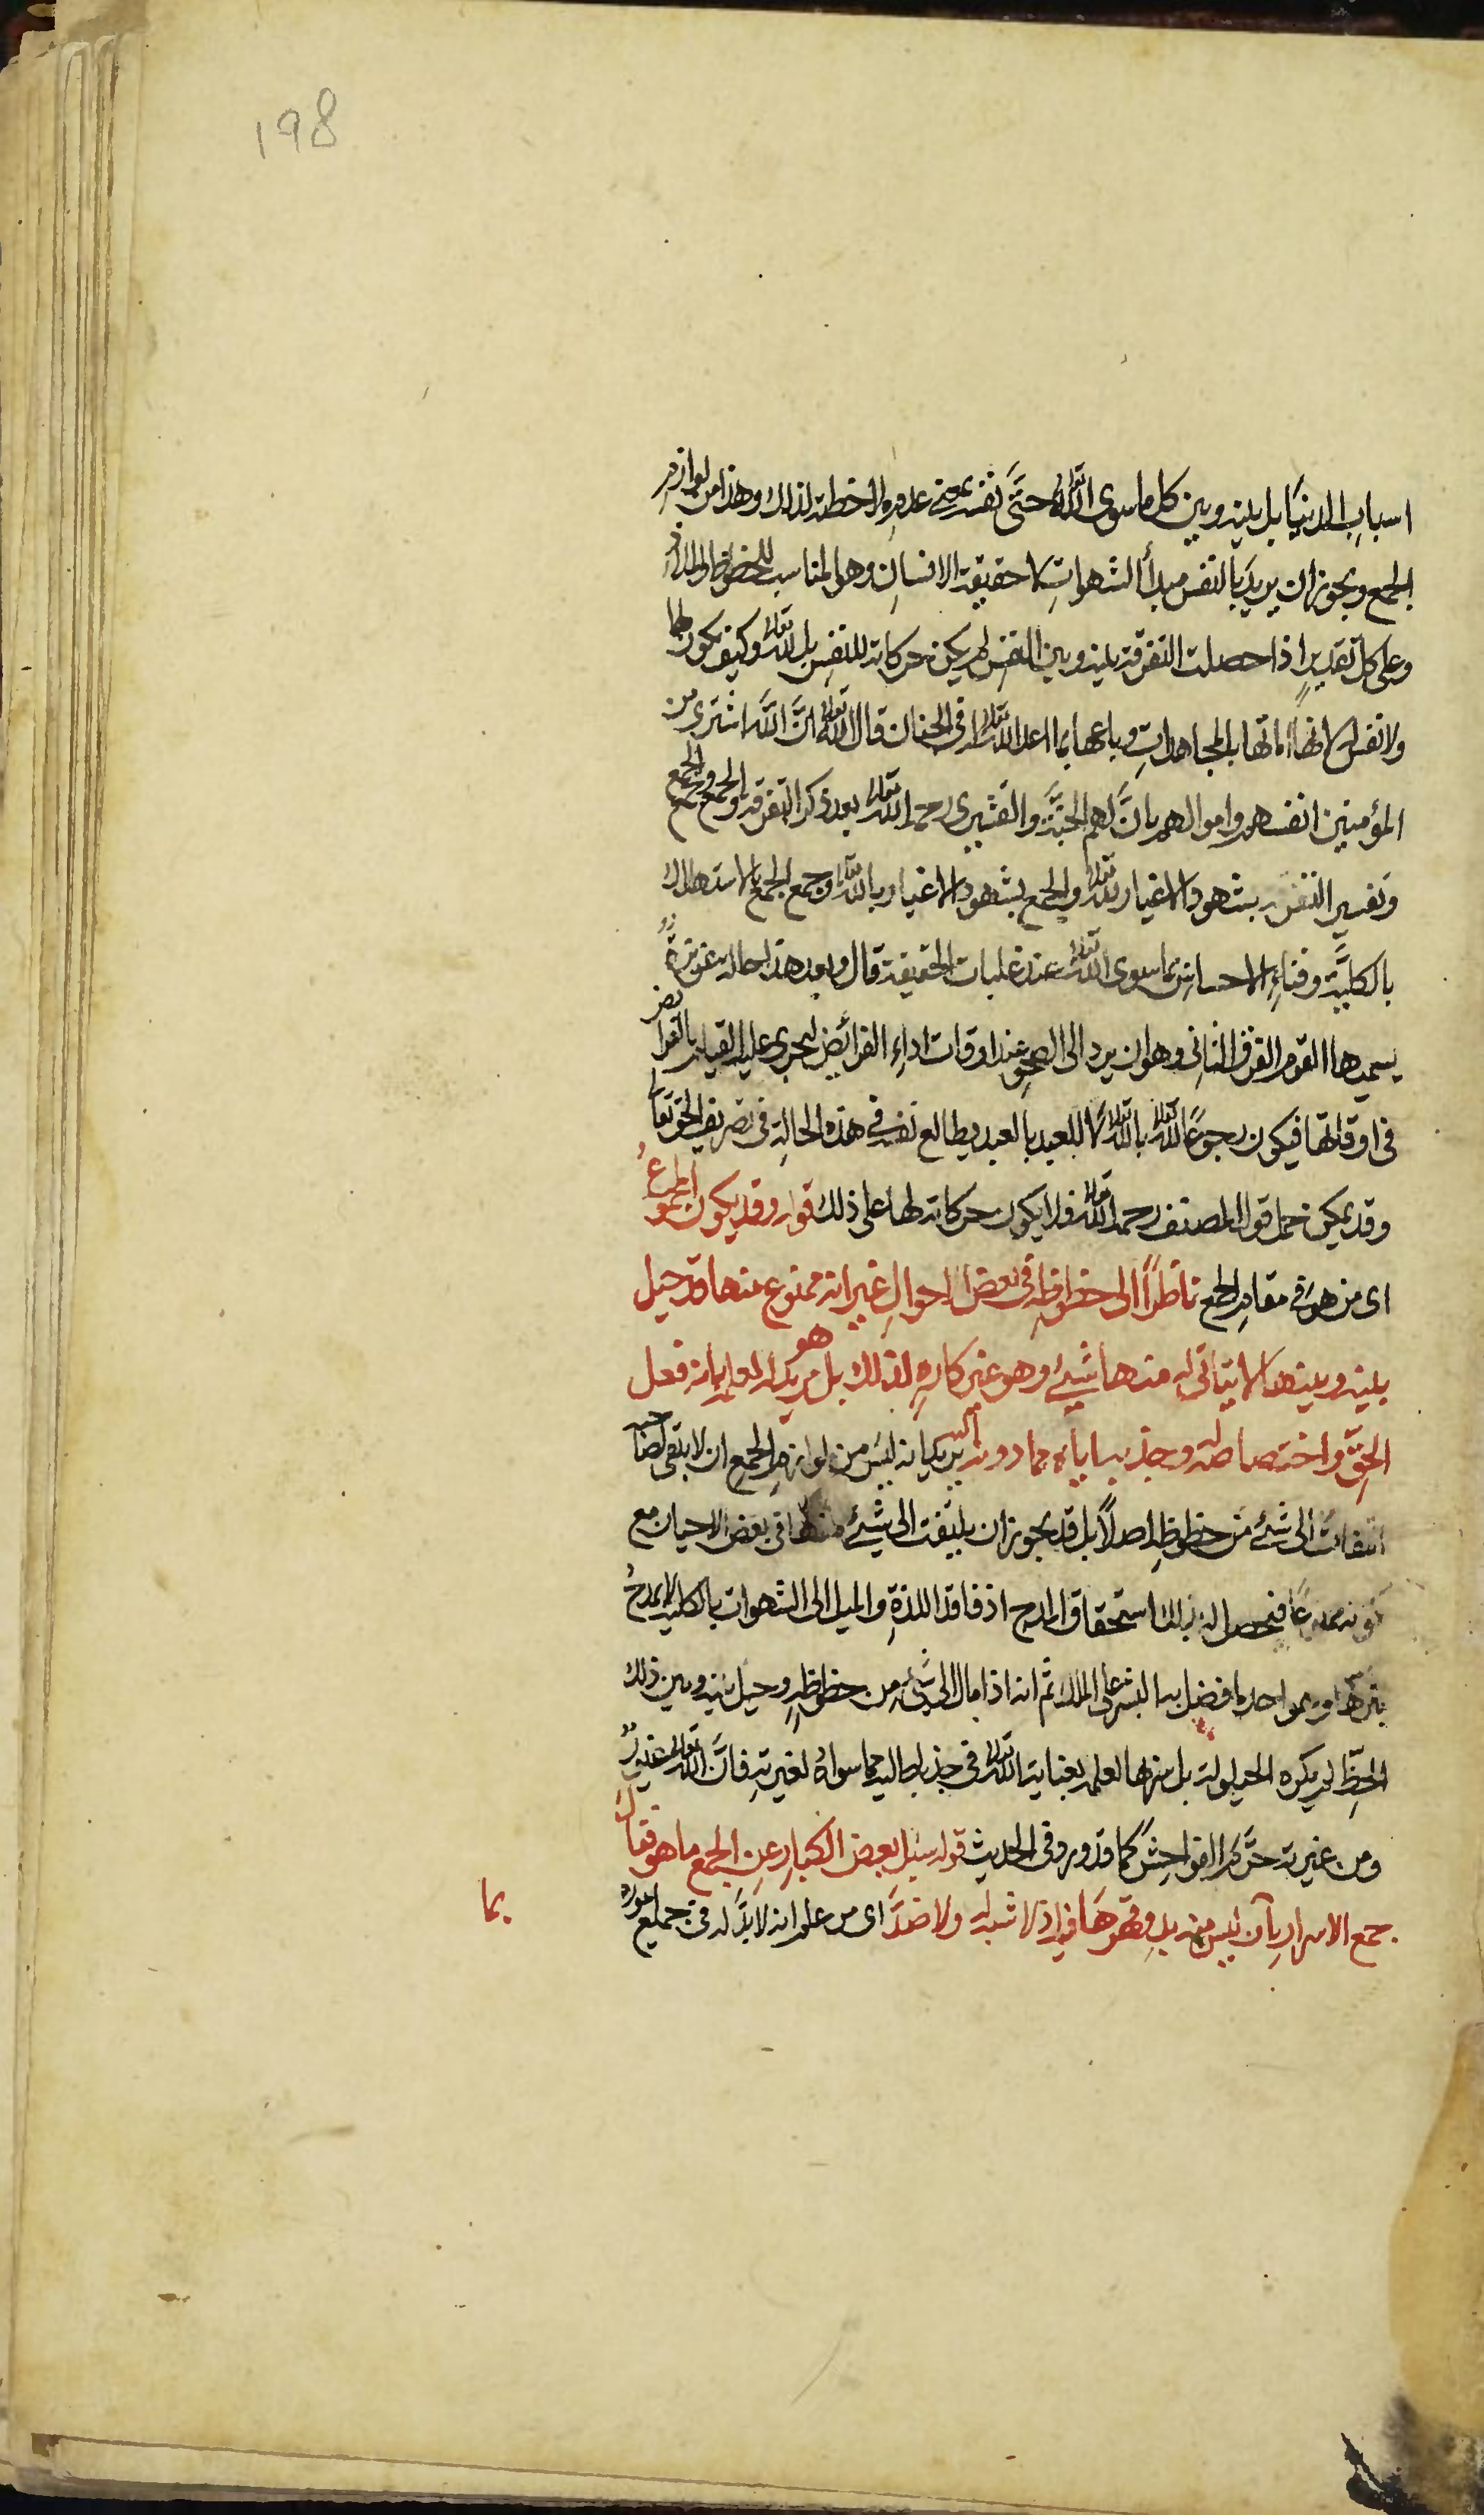 198
اسباب الدنيا بل بينه وبين كل ما سوى الله تعالى حتى نفسه بمعنى عدم ملاحظته لذلك وهذا من لوازم
الجمع ويجوز ان يريد بالنفس مبدأ الشهوات لا حقيقة الانسان وهو المناسب للحظوظ والملاذ
وعلى كل تقدير اذا حصلت التفرقة بينه وبين النفس لم يكن حركاته للنفس بل لله تعالى وكيف يكون لها
ولا نفس له لانها اماتها بالمجاهدات وباعها بما اعد الله تعالى له في الجنان قال الله تعالى ان الله اشترى من
المؤمنين انفسهم واموالهم بان لهم الجنة والقشيرى رحمه الله تعالى بعد ذكر التفرقة والجمع وجمع الجمع
وتفسير التفرقة بشهود الاغيار لله تعالى والجمع بشهود الاغيار بالله تعالى وجمع الجمع بالاستهلاك
بالكلية وفناء الاحساس بما سوى الله تعالى عند غلبات الحقيقة قال وبعد هذا حالة عزيزة
يسميها القوم الفرق الثانى وهو ان يرد الى الصحو عند اوقات اداء الفرائض ليجرى عليه القيام بالفرائض
فى اوقاتها فيكون رجوعا لله تعالى بالله تعالى لا للعبد بالعبد يطالع نفسه فى هذه الحالة فى تصريف الحق تعالى
وقد يمكن حمل قول المصنف رحمه الله تعالى فلا يكون حركاته لها على ذلك قوله وقد يكون المجموع
اى من هو فى مقام الجمع ناظرا الى حظوظه فى بعض الاحوال غير انه ممنوع منها قد حيل
بينه وبينها لا يتأتى له منها شيئ وهو غير كاره لذلك بل هو مريد له لعلمه بانه فعل
الحق واختصاصه له وجذبه اياه مما دونه يريد انه ليس من لوازم الجمع ان لا يبقى لصاحبه
التفات الى شئ من حظوظه اصلا بل قد يجوز ان يلتفت الى شيئ منها فى بعض الاحيان مع
كونه ممنوعا فيحصل له بذلك استحقاق المدح اذ فاقد اللذة والميل الى الشهوات بالكلية لا يمدح
بتركها افضل البشر على الملك ثم انه اذا مال الى شئ من حظوظه وحيل بينه وبين ذلك
الحظ لم يكره الحيلولة بل لعلمه بعناية الله تعالى فى جذبه اليه مما سواه لغيرته فان الله تعالى غيور
ومن غيرته حرم الفواحش كما قد ورد فى الحديث قوله سئل بعض الكبار عن الجمع ما هو فقال
جمع الاسرار بما ليس منه بد وقهرها فيه اذ لا شبه له ولا ضد اى من علم انه لا بد له فى جميع اموره
بما